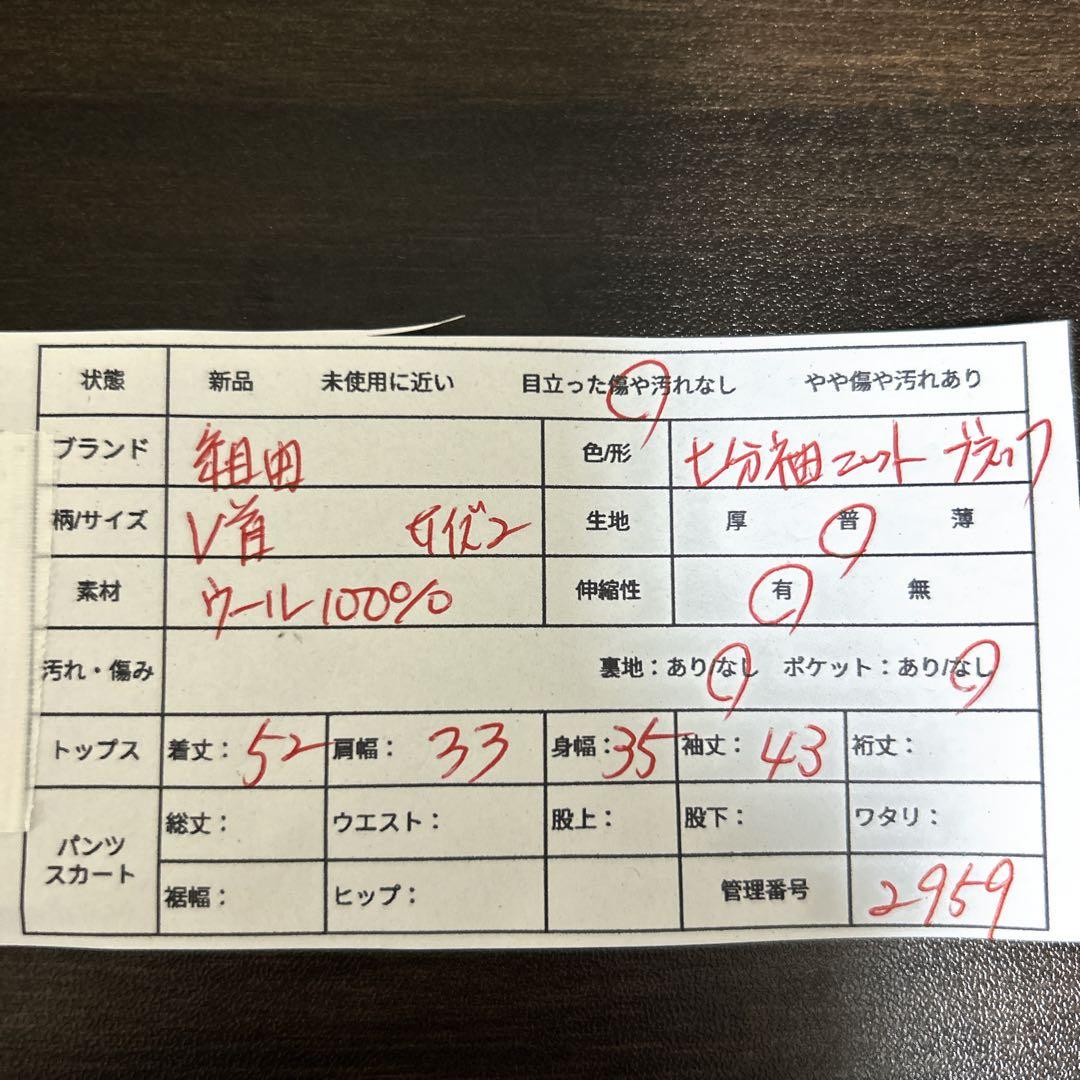 状態 新品 未使用に近い 目立った傷や汚れなし やや傷や汚れあり
ブランド 組曲 色/形 七分袖ニット ブラック
柄/サイズ V首 サイズ2 生地 厚 普 薄
素材 ウール100% 伸縮性 有 無
汚れ・傷み 裏地：あり/なし ポケット：あり/なし
トップス 着丈：52 肩幅：33 身幅：35 袖丈：43 裄丈：
パンツ スカート 総丈： ウエスト： 股上： 股下： ワタリ：
裾幅： ヒップ： 管理番号 2959